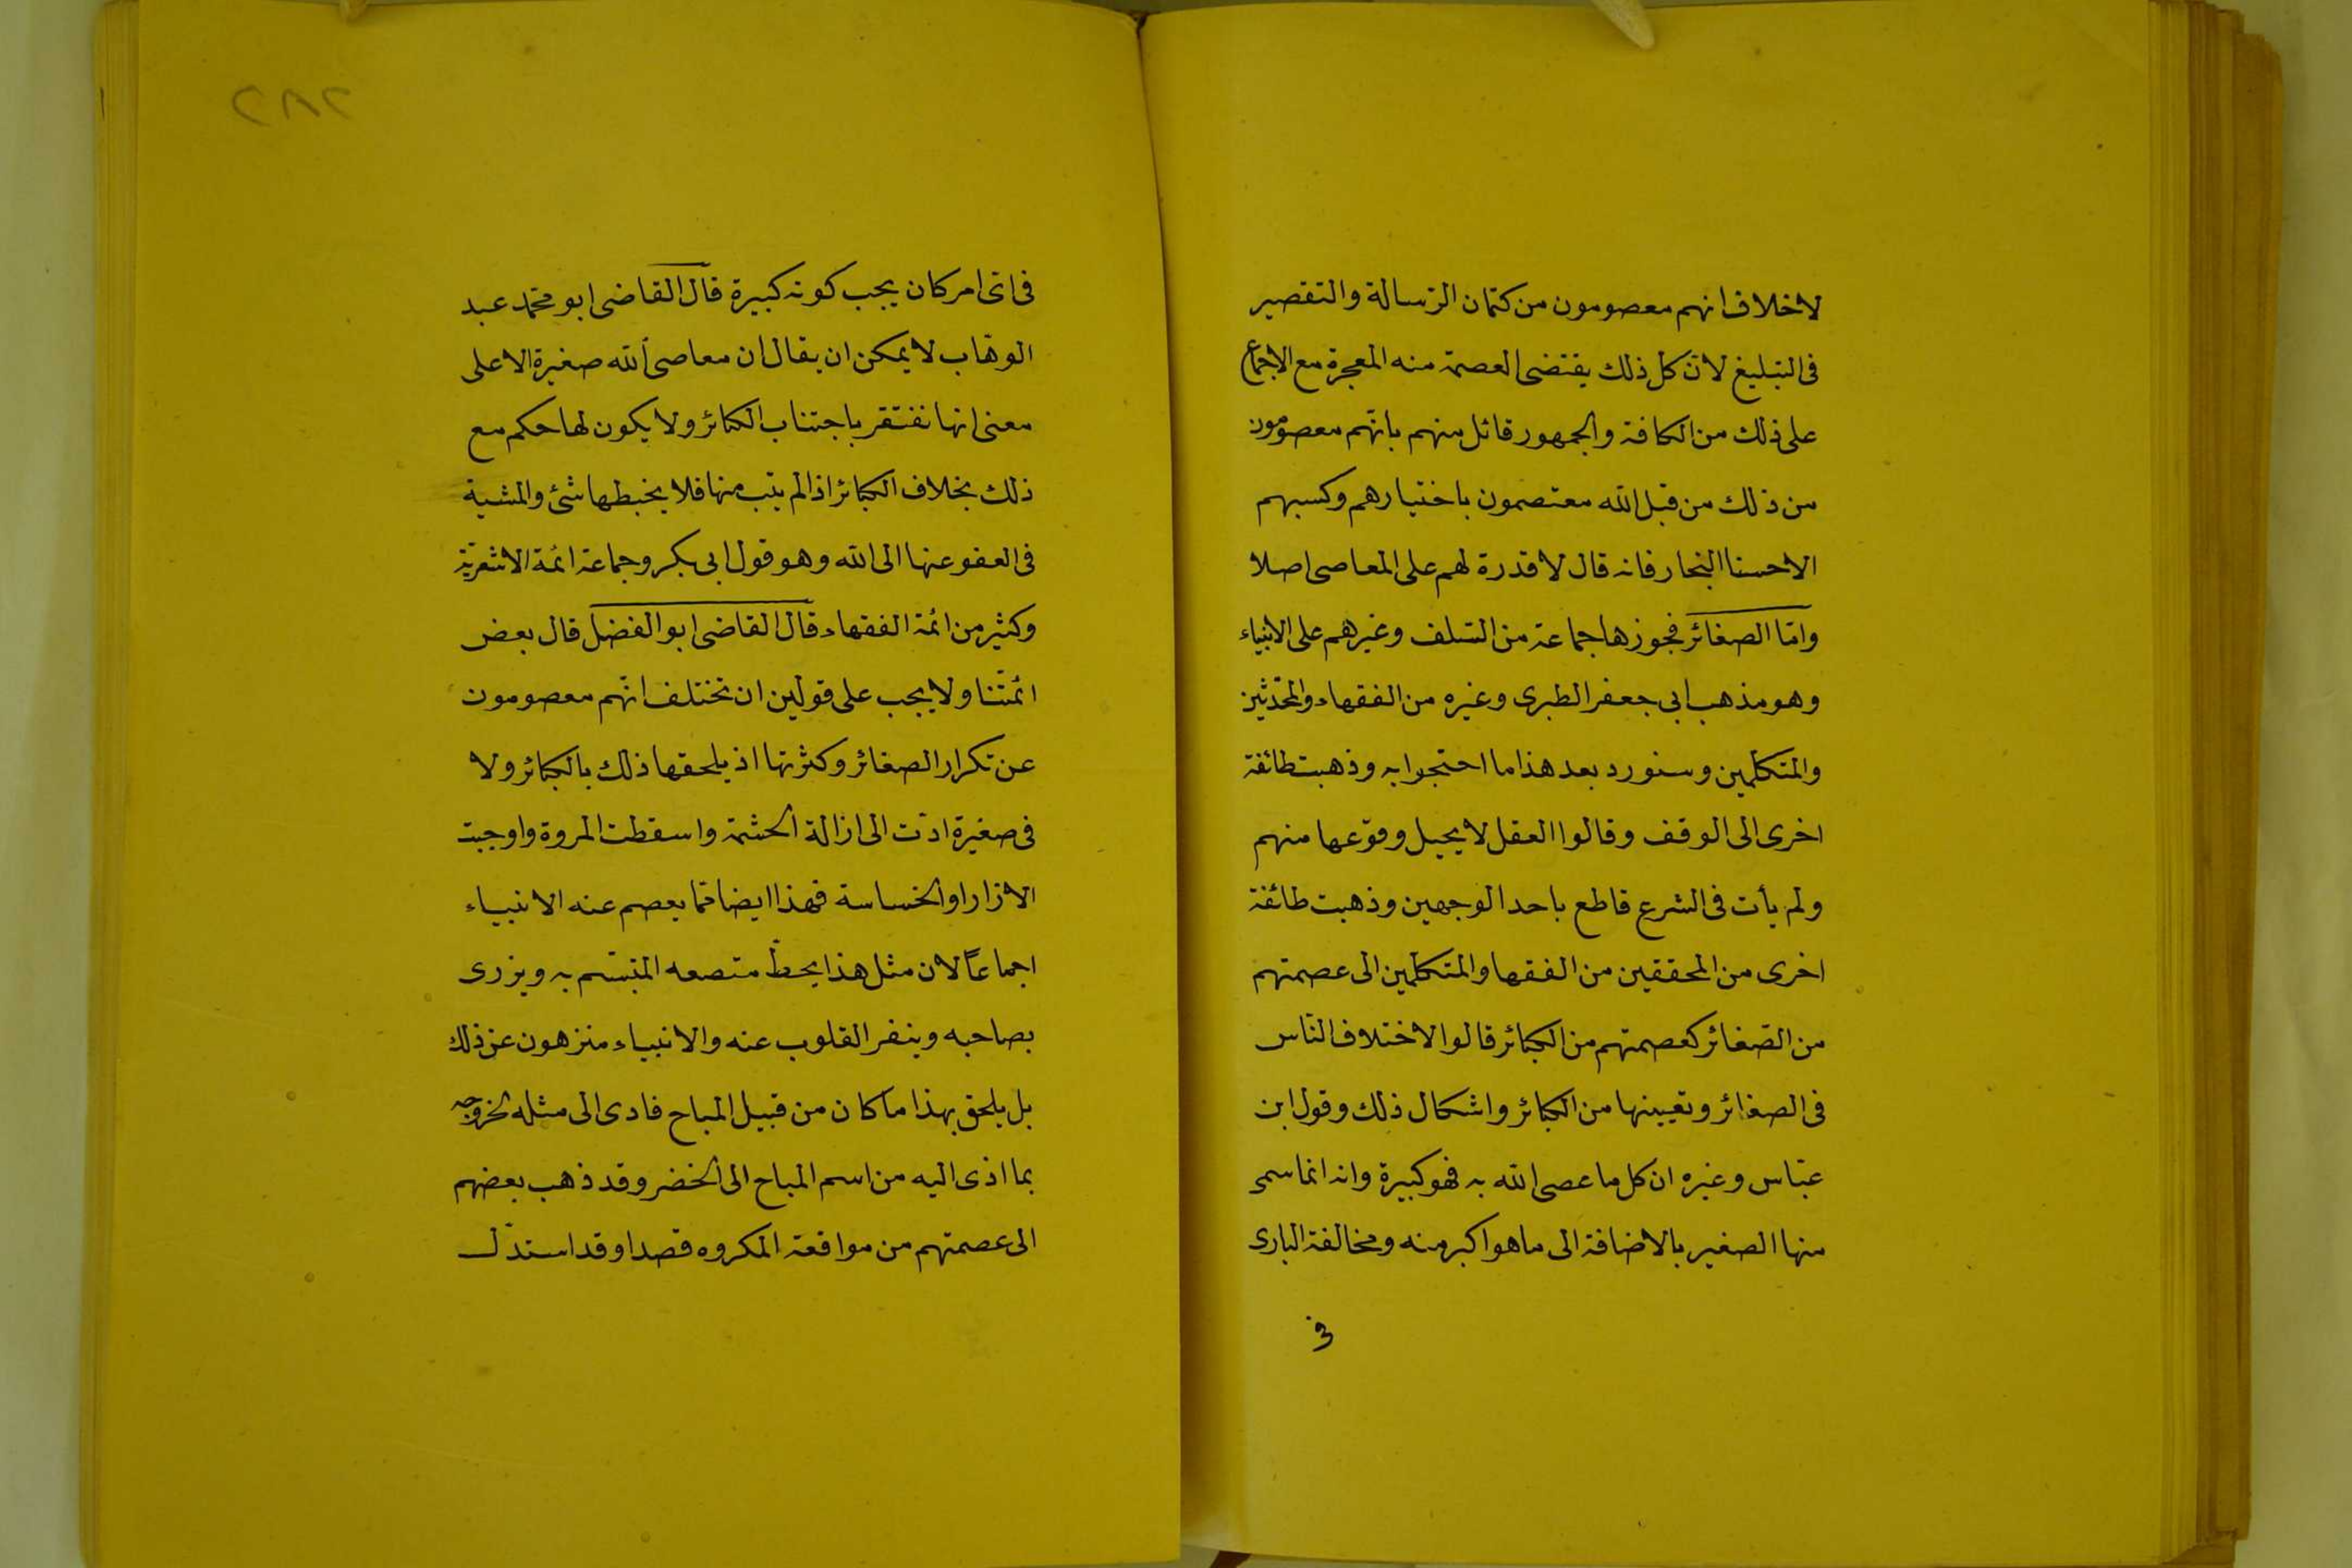 لا خلاف انهم معصومون من كتمان الرّسالة والتقصير
فى التبليغ لانّ كل ذلك يقتضى العصمة منه المعجزة مع الاجماع
على ذلك من الكافة والجمهور قائل منهم بانّهم معصومون
من ذلك من قبل الله معتصمون باختيارهم وكسبهم
الا حسنا النجار فانه قال لا قدرة لهم على المعاصى اصلا
وامّا الصغائر فجوزها جماعة من السّلف وغيرهم على الانبياء
وهو مذهب ابى جعفر الطبرى وغيره من الفقهاء والمحّدثين
والمتكلّمين وسنورد بعد هذا ما احتجوا به وذهبت طائفة
اخرى الى الوقف وقالوا العقل لا يحيل وقوعها منهم
ولم يأت فى الشرع قاطع باحد الوجهين وذهبت طائفة
اخرى من المحققين من الفقها والمتكلّمين الى عصمتهم
من الصّغائر كعصمتهم من الكبائر قالوا لاختلاف النّاس
فى الصغائر وتعيينها من الكبائر واشكال ذلك وقول ابن
عبّاس وغيره ان كل ما عصى الله به فهو كبيرة وانه انما سمى
منها الصغير بالاضافة الى ما هو اكبر منه ومخالفة البارى
فى
٢٨٢
فى اىّ امر كان يجب كونه كبيرة قال القاضى ابو محمّد عبد
الوهّاب لا يمكن ان يقال ان معاصى الله صغيرة الا على
معنى انها نفتقر باجتناب الكبائر ولا يكون لها حكم مع
ذلك بخلاف الكبائر اذا لم يتب منها فلا يخبطها شئ والمشية
فى العفو عنها الى الله وهو قول ابى بكر وجماعة ائمة الاشعريّة
وكثير من ائمة الفقهاء قال القاضى ابو الفضل قال بعض
ائمتّنا ولا يجب على قولين ان تختلف انّهم معصومون
عن تكرار الصغائر وكثرتها اذ يلحقها ذلك بالكبائر ولا
فى صغيرة ادّت الى ازالة الحشمة واسقطت المروة واوجبت
الازرا اوالخساسة فهذا ايضا ممّا يعصم عنه الانبياء
اجماعًا لان مثل هذا يحطّ منصعه المتّسم به ويزرى
بصاحبه وينفر القلوب عنه والانبياء منزهون عن ذلك
بل يلحق بهذا ما كان من قبيل المباح فادى الى مثله لخروجه
بما ادّى اليه من اسم المباح الى الخضر وقد ذهب بعضهم
الى عصمتهم من مواقعة المكروه قصدا وقد استدّل